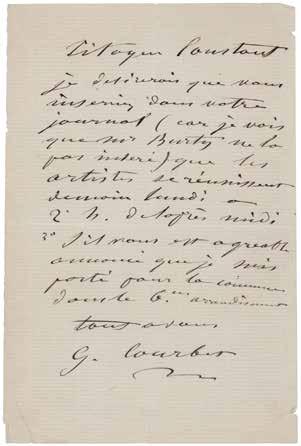 Citoyen Constant
je desirerois que vous
inseriez dans votre
journal (car je vois
que mr Burty ne la
pas inseré) que les
artistes se réunissent
demain lundi a
2 h. de laprès midi
2º S'il vous est agreable
annoncé que je suis
porté pour la commune
dans le 6me arrondissement
tout a vous
G. Courbet